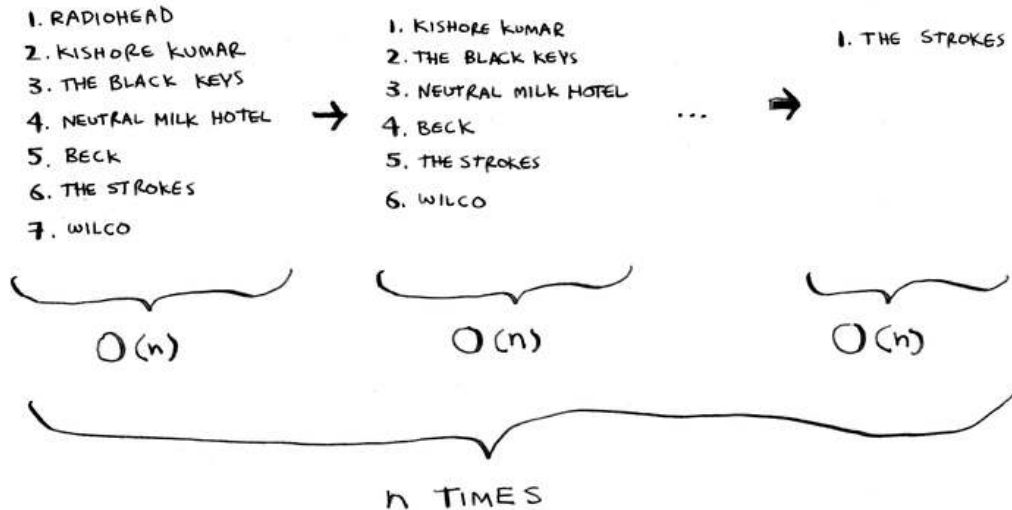 1. RADIOHEAD
2. KISHORE KUMAR
3. THE BLACK KEYS
4. NEUTRAL MILK HOTEL
5. BECK
6. THE STROKES
7. WILCO
1. KISHORE KUMAR
2. THE BLACK KEYS
3. NEUTRAL MILK HOTEL
4. BECK
5. THE STROKES
6. WILCO
...
1. THE STROKES
O(n)
O(n)
O(n)
n TIMES